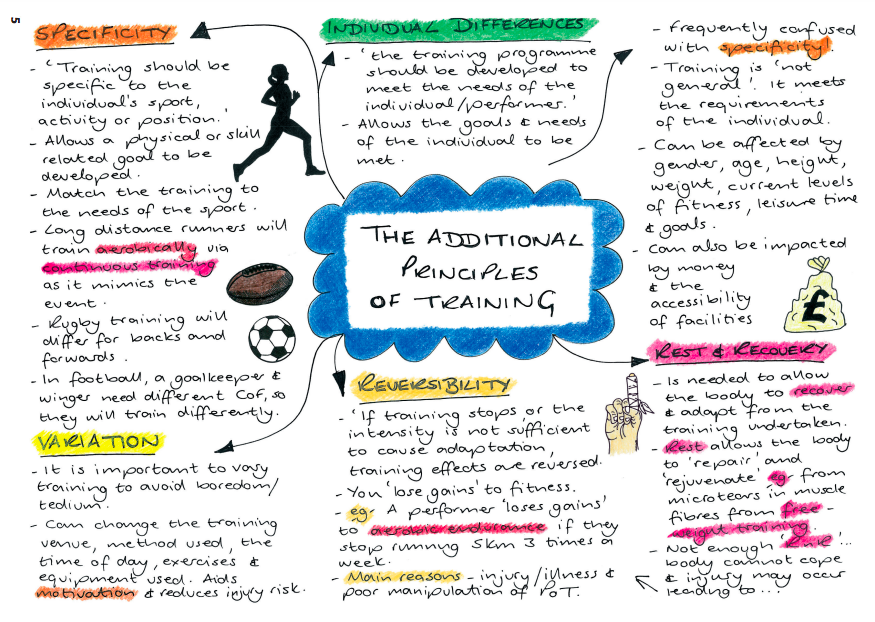 5
SPECIFICITY
- 'Training should be
specific to the
individual's sport,
activity or position.'
- Allows a physical or skill
related goal to be
developed.
- Match the training to
the needs of the sport.
- Long distance runners will
train aerobically via
continuous training
as it mimics the
event.
- Rugby training will
differ for backs and
forwards.
- In football, a goalkeeper &
winger need different CoF, so
they will train differently.
VARIATION
- It is important to vary
training to avoid boredom/
tedium.
- Can change the training
venue, method used, the
time of day, exercises &
equipment used. Aids
motivation & reduces injury risk.
INDIVIDUAL DIFFERENCES
- 'the training programme
should be developed to
meet the needs of the
individual/performer.'
- Allows the goals & needs
of the individual to be
met.
THE ADDITIONAL
PRINCIPLES
OF TRAINING
REVERSIBILITY
- 'If training stops or the
intensity is not sufficient
to cause adaptation,
training effects are reversed.
- You 'lose gains' to fitness.
- eg- A performer 'loses gains'
to aerobic endurance if they
stop running 5km 3 times a
week.
- Main reasons - injury/illness &
poor manipulation of PoT.
- Frequently confused
with specificity!
- Training is 'not
general'. It meets
the requirements
of the individual.
- Can be affected by
gender, age, height,
weight, current levels
of fitness, leisure time
& goals.
- Can also be impacted
by money
& the
accessibility
of facilities
£
REST & RECOVERY
- Is needed to allow
the body to recover
& adapt from the
training undertaken.
- Rest allows the body
to 'repair' and
'rejuvenate' eg- from
microtears in muscle
fibres from free-
weight training.
- Not enough 'R&R'...
body cannot cope
& injury may occur
leading to...